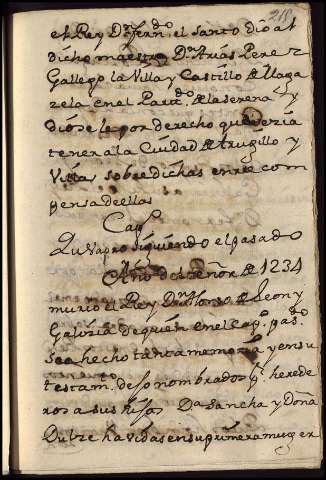 215
el Rey Dn Ferndo, el santo dio al
dicho maestre Dn Arias Perez
Gallego la Villa y Castillo de Maga
zela en el Partdo de la serena y
dio se le por derecho que
tener a la Ciudad de trugillo y
Villas sobre dichas en re com
pensa de ellas
Capo
siguiendo el pasado
Año del señor de 1234
murio el Rey Dn Alonso de Leon y
Galizia de quien en el Capo pasdo
se a hecho tanta memoria y en su
testamto dejo nombrados qe herede
ros a sus hijas Da Sancha y Doña
Dulze havidas en su primera muger